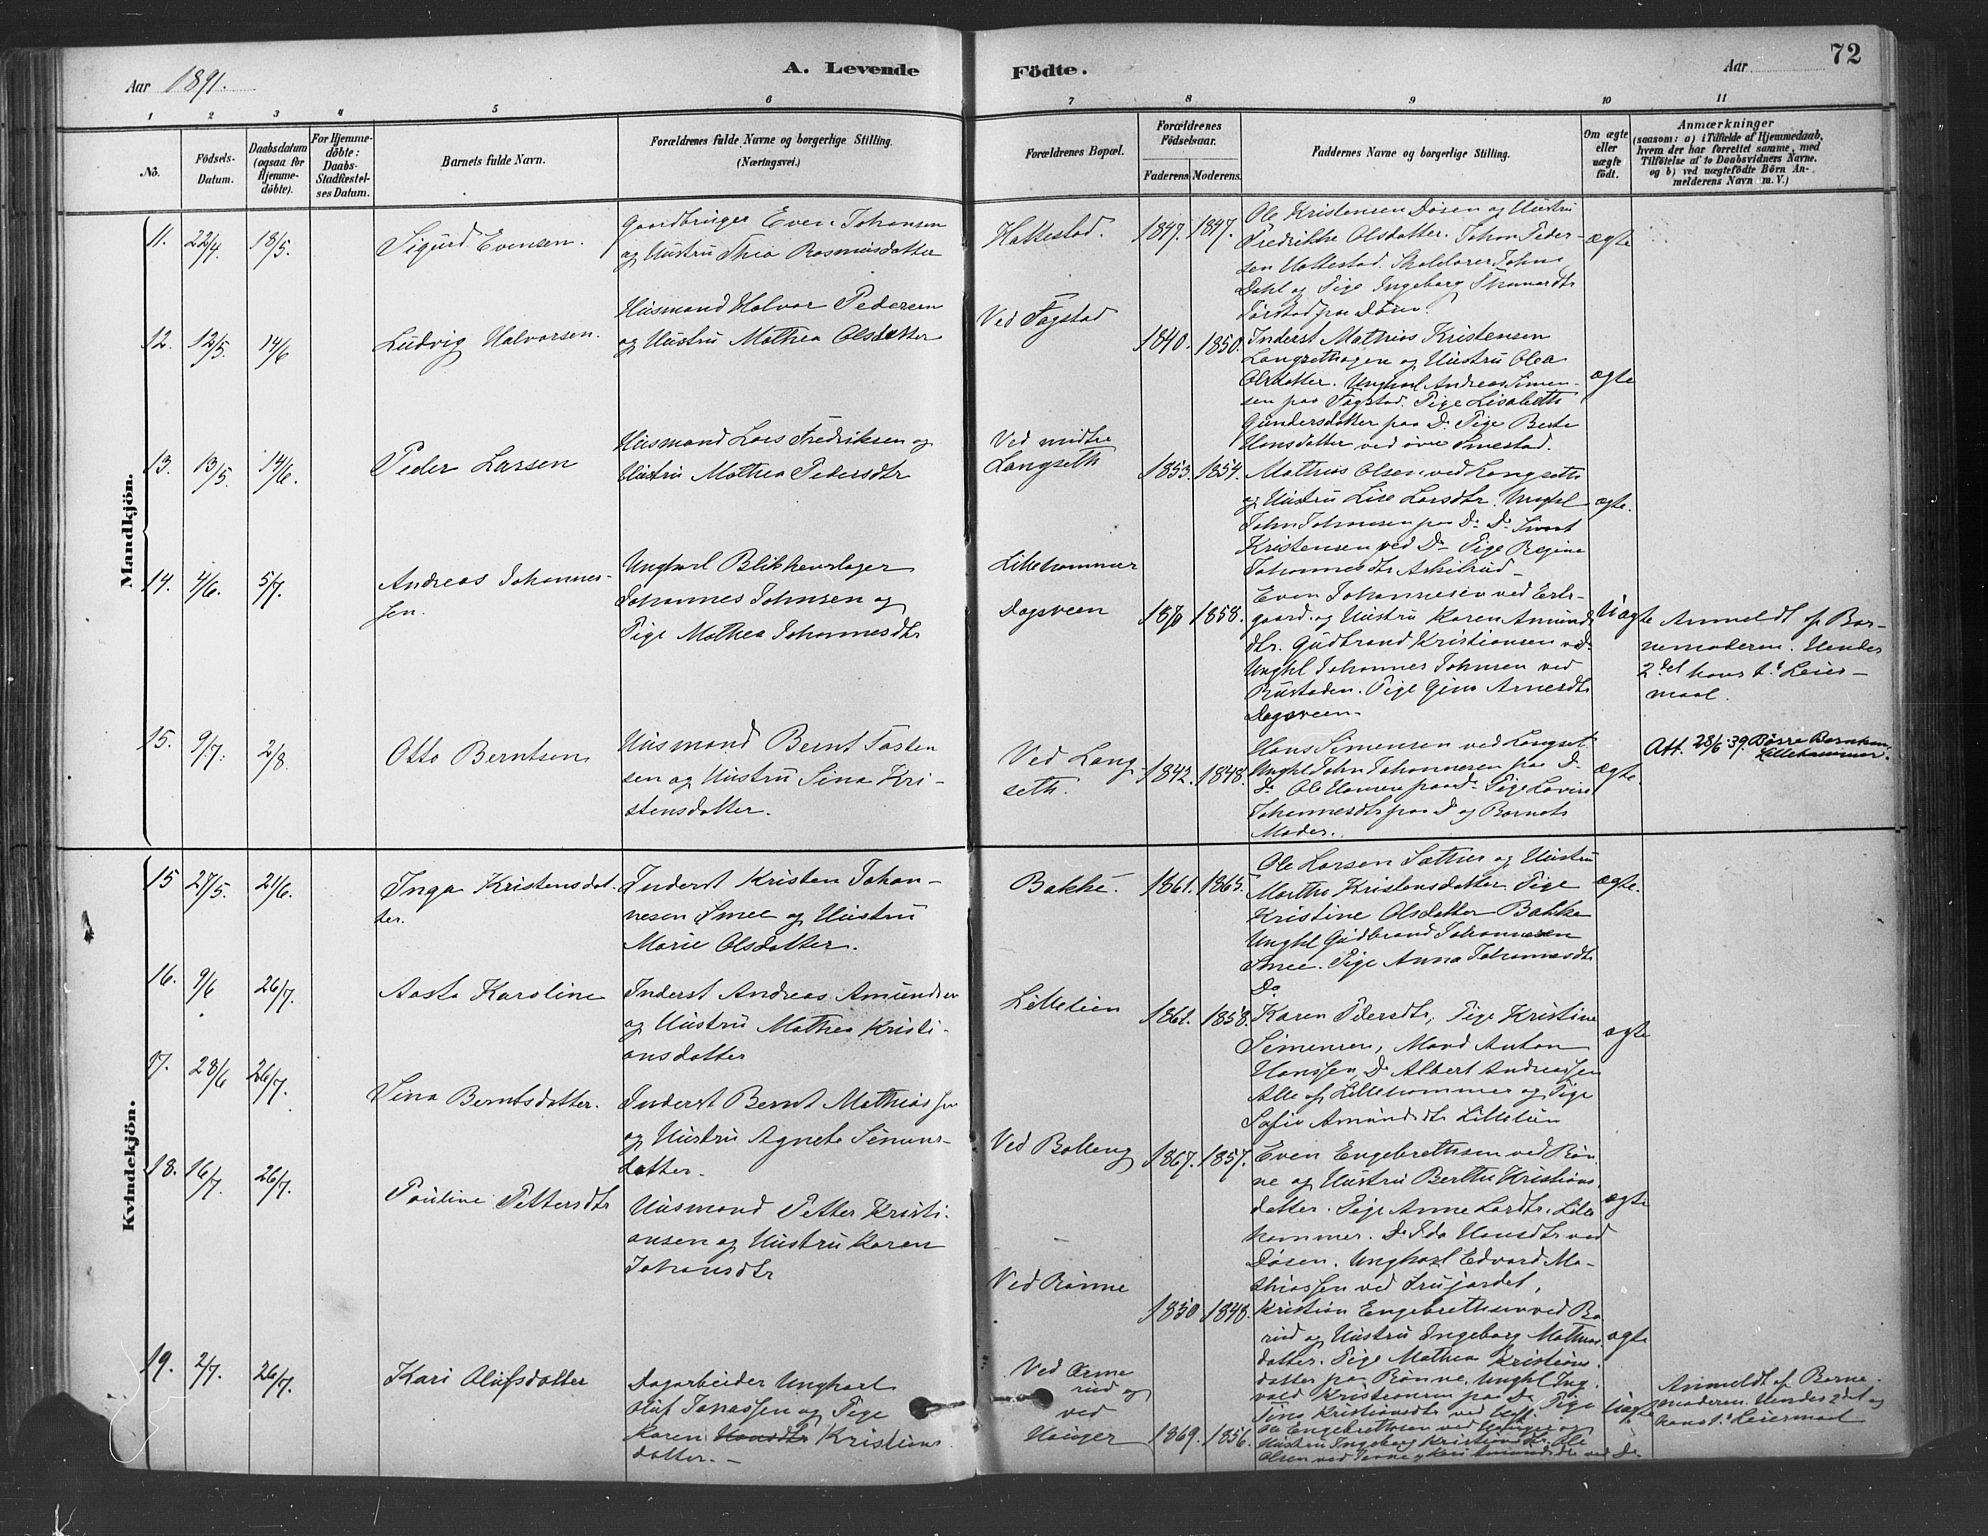 Aar 1891.
A. Levende Födte.
Aar
72
1 2 3 4 5 6 7 8 9 10 11
No.
Födsels-Datum.
Daabsdatum (ogsaa for Hjemme-döbte).
For Hjemme-döbte: Daabs-Stadfæstel-ses Datum.
Barnets fulde Navn.
Forældrenes fulde Navne og borgerlige Stilling. (Næringsvei.)
Forældrenes Bopæl.
Forældrenes Födselsaar.
Faderens. Moderens.
Faddernes Navne og borgerlige Stilling.
Om ægte eller uægte födt.
Anmærkninger
(saasom: a) i Tilfælde af Hjemmedaab,
hvem der har forrettet samme, med
Tilföielse af to Daabsvidners Navne,
og b) ved uægtefödte Börn An-
melderens Navn m. V.)
Mandkjön.
11. 22/4 18/5. Sigurd Evensen.
Gaardbruger Even Johansen
og Hustru Thea Rasmusdatter
Hattestad. 1847. 1847.
Ole Kristensen Døsen og Hustru
Fredrikke Olsdatter. Johan Peder-
sen Hattestad. Skolelærer Johns
Dahl og Pige Ingeborg
ægte
12. 12/5. 14/6 Ludvig Halvorsen.
Husmand Halvor Pedersen
og Hustru Mathea Olsdatter
Ved Fagstad 1840. 1850.
Inderst Mathias Kristensen
Langsethagen og Hustru Olea
Olsdatter. Ungkarl Andreas Simen-
sen paa Fagstad. Pige Lisabeth
Gundersdatter paa Do Pige Berte
Hansdatter ved øvre Smestad.
ægte
13. 13/5. 14/6. Peder Larsen
Husmand Lars Fredriksen og
Hustru Mathea Pedersdtr
Ved midtre
Langseth 1853. 1854.
Mathias Olsen ved Langseth
og Hustru Lise Larsdtr. Unghl
John Johansen paa Do Do
Kristensen ved Do Pige Regine
Johannesdtr
ægte.
14. 4/6. 5/7. Andreas Johannes-
sen.
Ungkarl Blikkenslager
Johannes Johnsen og
Pige Mathea Johannesdtr
Lillehammer
Dagsveen 1858.
Even Johannesen ved
gaard og Hustru Karen Amunds
dtr. Gudbrand Kristiansen ved
Unghl Johannes Johnsen ved
Rustaden. Pige Gina Arnesdtr
Dagsveen.
Uægte
Anmeldt af Bar-
nemoderen. Hendes
2det hans 1ste Leier-
maal.
15. 9/7. 2/8. Otto Berntsen
Husmand Bernt Tosten
sen og Hustru Sina Kri-
stensdatter.
Ved Lang-
seth. 1842. 1848.
Hans Simensen ved Langset.
Unghl John Johannesen paa Do
Do Ole Hansen paa Do Pige Lovise
Johannesdtr paa Do og Barnets
Moder.
ægte.
Att. 28/6 39. Børre Berntsen,
Lillehammer.
Kvindekjön.
15 27/5 21/6. Inga Kristensdat-
ter.
Inderst Kristen Johan-
nesen Smee og Hustru
Marie Olsdatter.
Bakke. 1861. 1865.
Ole Larsen Sæther og Hustru
Marthe Kristensdatter. Pige
Kristine Olsdatter Bakke
Unghl Gudbrand Johannesen
Smee. Pige Anna Johannesdtr
Do
ægte.
16. 9/6 26/7. Aasta Karoline
Inderst Andreas Amundsen
og Hustru Mathea Kristi-
ansdatter
Lillelien 1861. 1858.
Karen Pedersdtr, Pige Kristine
Simensen, Mand Anton
Hanssen, Do Albert Andreassen
Alle af Lillehammer og Pige
Sofie Amundsdtr Lillelien
ægte
17. 28/6 26/7. Sina Berntsdatter.
Inderst Bernt Mathiassen
og Hustru Agnete Simens-
datter.
Ved Balleng 1867. 1857.
Even Engebrethsen ved Røn-
ne og Hustru Berthe Kristians-
datter. Pige Anne Larsdtr. Lille-
hammer. Do Ida Hansdtr ved
Døsen. Ungkarl Edvard Ma-
thiassen ved
ægte
18. 16/7. 26/7. Pauline Pettersdtr
Husmand Petter Kristi-
ansen og Hustru Karen
Johansdtr
Ved Rønne 1850 1848.
Kristian Engebrethsen ved
og Hustru Ingeborg Mathias
datter. Pige Mathea Kristians-
datter paa Rønne, Unghl Ing-
vald Kristiansen paa Do Pige
Sina Kristiansdtr ved
ægte
19. 2/7. 26/7. Kari Olufsdatter
Dagarbeider Ungkarl
Oluf Jonassen og Pige
Karen Hansdtr Kristians
datter.
Ved Ørme
rud og
ved
Hauger 1869. 1856.
Ole Engebrethsen ved Hauger og
Hustru Ingeborg Kristiansdtr. Ole
Olsen ved
Uægte
Anmeldt af Barne-
moderen. Hendes 2det og
hans 1ste Leiermaal